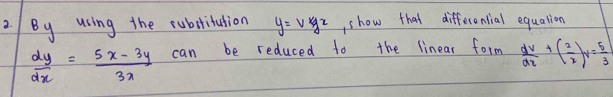 2. By using the substitution y = vx, show that differential equation
dy/dx = 5x - 3y / 3x can be reduced to the linear form dv/dx + (2/x)v = 5/3